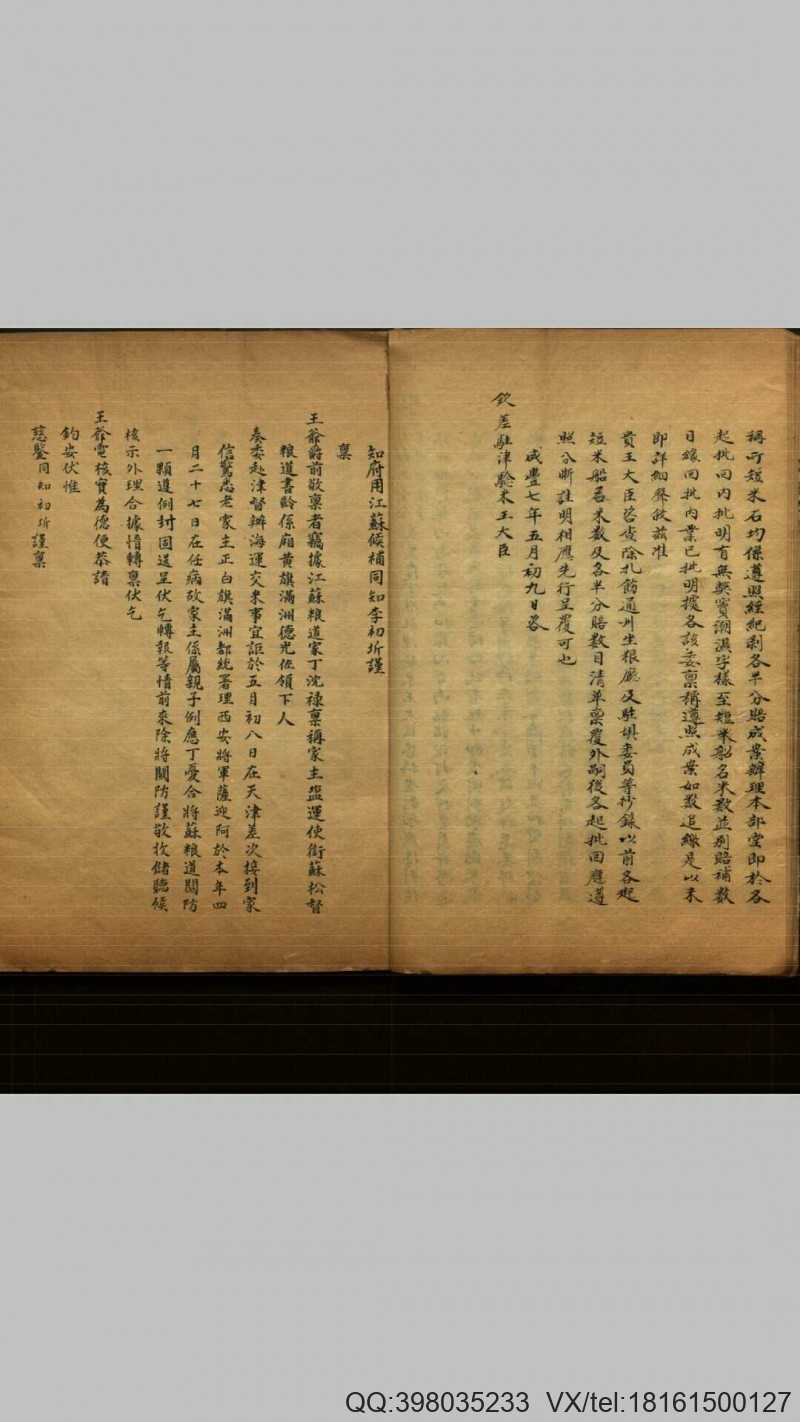 稱所短米石均係遵照經紀剥各半分賠成案辦理本部堂即於各
起批回内批明有無攙雜潮濕字樣至短米船名米數並剥賠補數
目緣回批内業已批明據各該委稟稱遵照成案如數追繳是以未
即詳細聲敘兹准
貴王大臣咨查除札飭通州坐粮廳及駐壩委員等抄錄以前各起
短米船名米數及各半分賠數目清单稟覆外嗣後各起批回應遵
照分晰註明相應先行呈覆可也
咸豐七年五月初九日咨
欽差駐津驗米王大臣
知府用江蘇候補同知李初圻謹
稟
王爺爵前敬稟者竊據江蘇粮道家丁沈祿稟稱家主鹽運使銜蘇松督
粮道書齡係廂黄旗滿洲德光佐領下人
奏委赴津督辦海運交米事宜詎於五月初八日在天津差次接到家
信驚悉老家主正白旗滿洲都統署理西安將軍薩迎阿於本年四
月二十七日在任病故家主係屬親子例應丁憂合將蘇粮道關防
一顆遵例封固送呈伏乞轉報等情前來除將關防謹敬收儲聽候
核示外理合據情轉稟伏乞
王爺電核實為德便恭請
鈞安伏惟
慈鑒同知初圻謹稟
QQ:398035233 VX/tel:18161500127